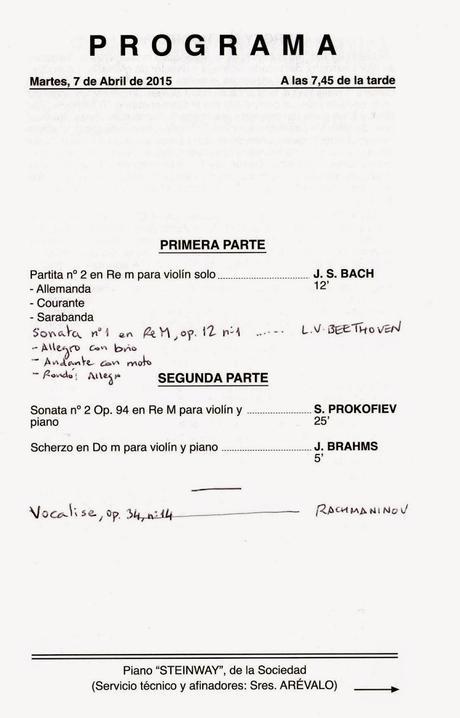 PROGRAMA
Martes, 7 de Abril de 2015 A las 7,45 de la tarde
PRIMERA PARTE
Partita nº 2 en Re m para violín solo .............................. J. S. BACH
- Allemanda 12'
- Courante
- Sarabanda
Sonata nº1 en Re M, op. 12 nº1 ...... L.V. BEETHOVEN
- Allegro con brio
- Andante con moto
- Rondó: Allegro
SEGUNDA PARTE
Sonata nº 2 Op. 94 en Re M para violín y ..................... S. PROKOFIEV
piano 25'
Scherzo en Do m para violín y piano ............................. J. BRAHMS
5'
Vocalise, op. 34, nº14 RACHMANINOV
Piano “STEINWAY”, de la Sociedad
(Servicio técnico y afinadores: Sres. ARÉVALO)